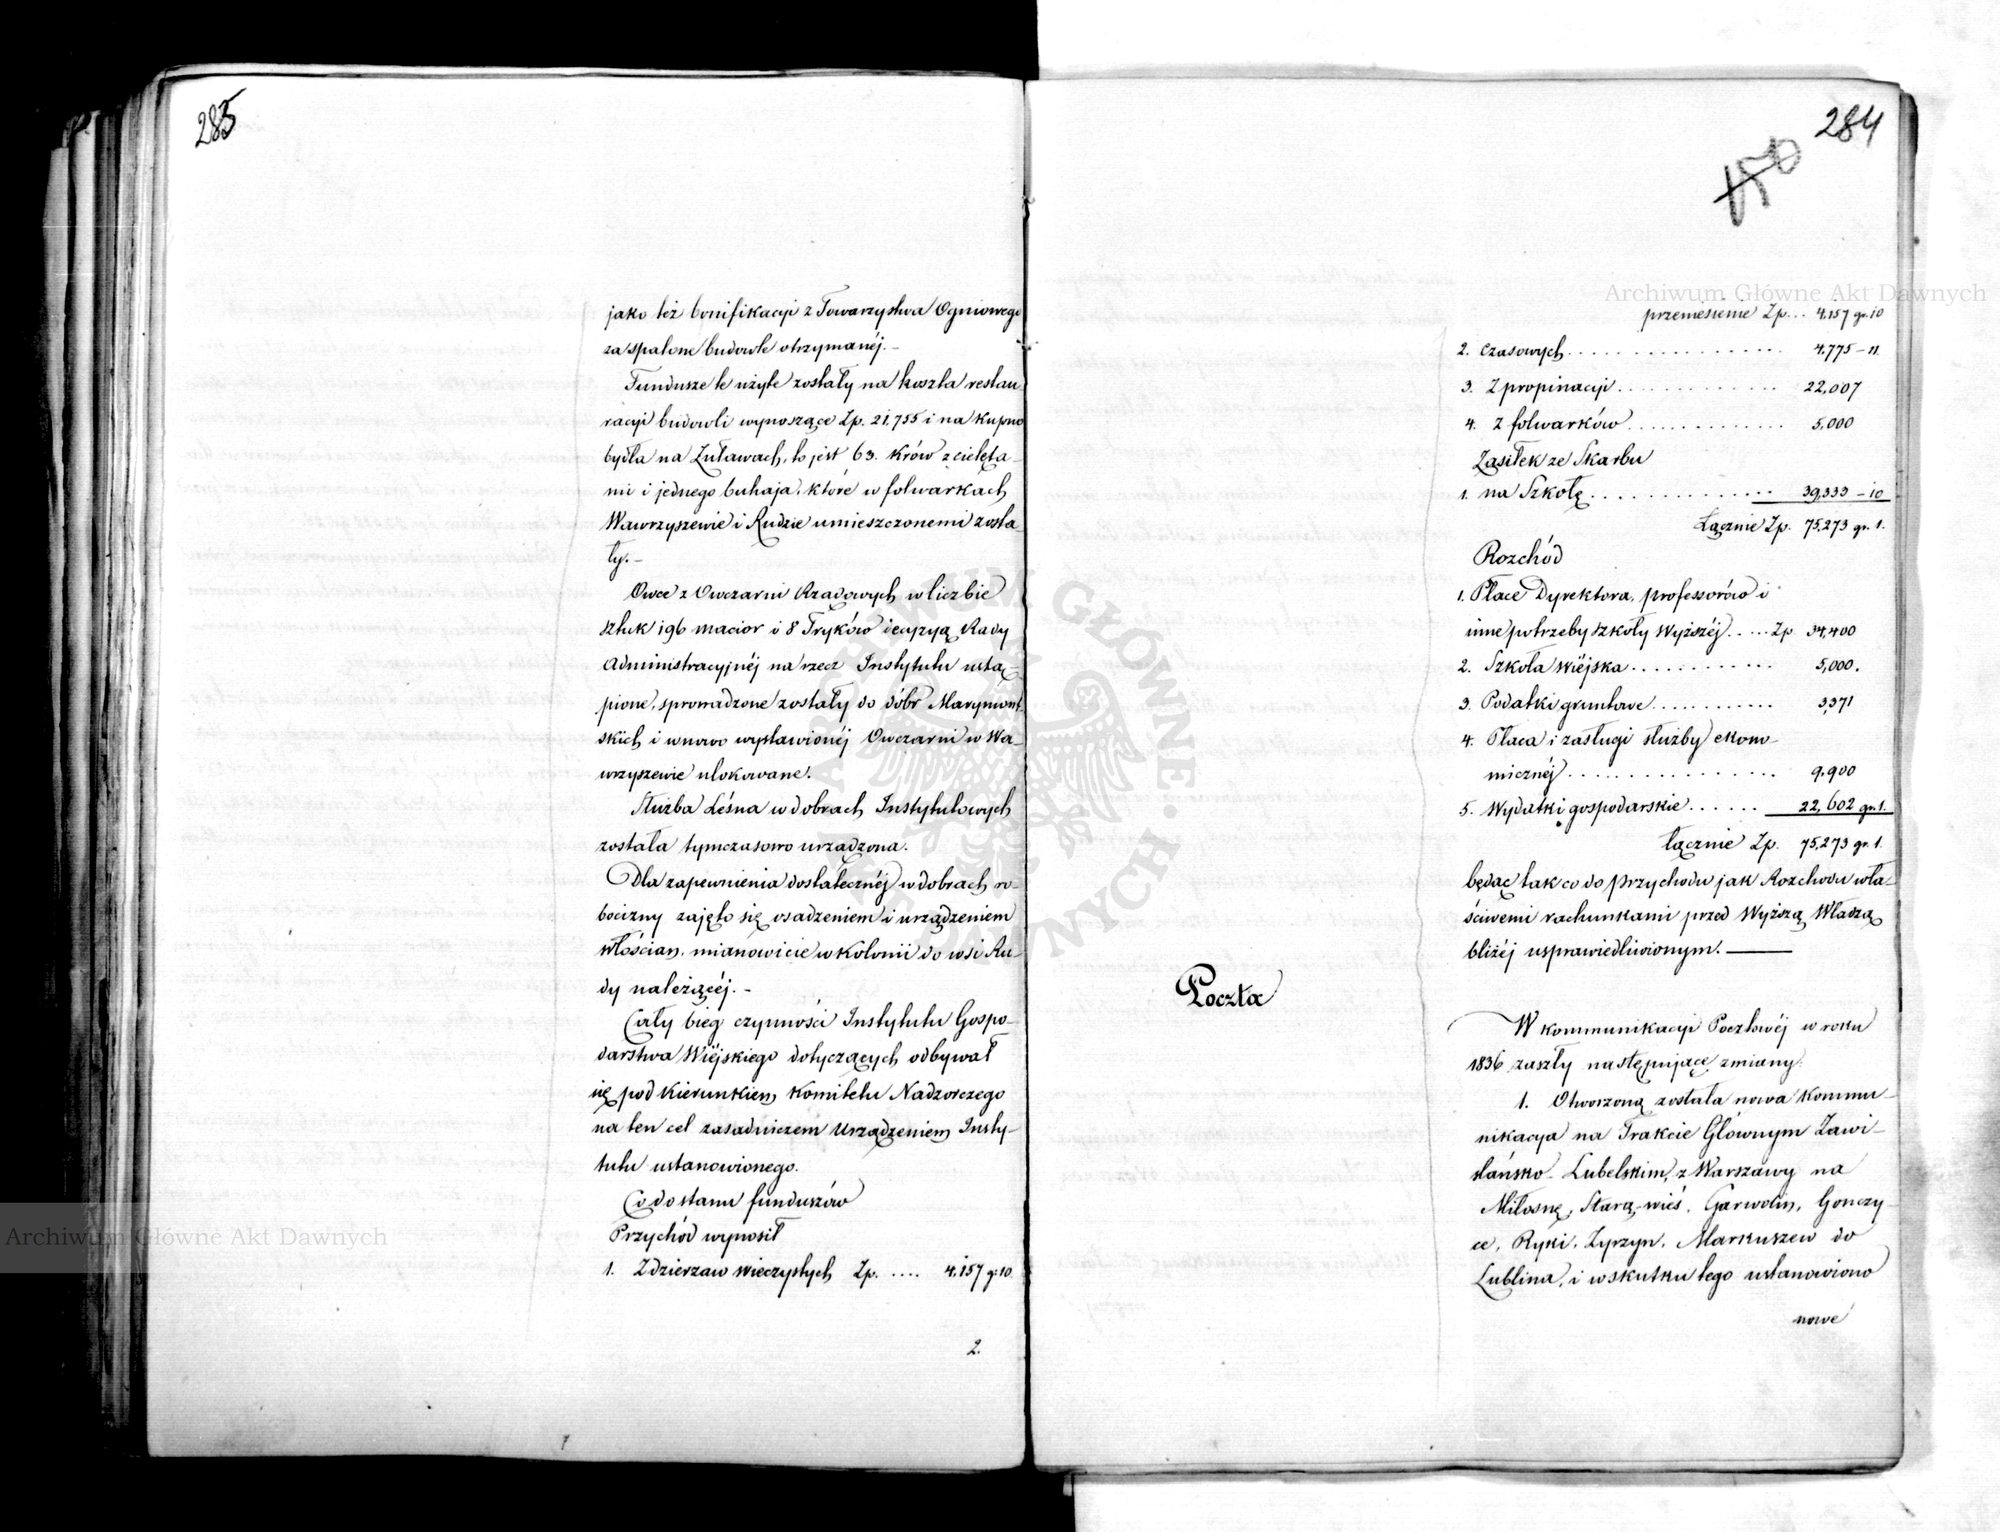 285
jako też bonifikacyi z Towarzystwa Ogniowego
za spalone budowle otrzymanéj.-
Fundusze te użyte zostały na koszta restau
racyi budowli wynoszące Zp. 21,755 i na kupno
bydła na Żuławach, to jest 63. krów z cielęta-
mi i jednego buhaja, które w folwarkach
Wawrzyszewie i Rudzie umieszczonemi zosta-
ły.-
Owce z Owczarni Rządowych w liczbie
sztuk 196 macior i 8 Tryków decyzyą Rady
Administracyjnéj na rzecz Instytutu ustą-
pione, sprowadzone zostały do dóbr Marymont-
skich i w nowo wystawionéj Owczarni w Wa-
wrzyszewie ulokowane.
Służba Leśna w dobrach Instytutowych
została tymczasowo urządzona.
Dla zapewnienia dostatecznéj w dobrach ro-
bocizny zajęto się osadzeniem i urządzeniem
włościan, mianowicie w Kolonii do wsi Ru-
dy należącéj.-
Cały bieg czynności Instytutu Gospo-
darstwa Wiéjskiego dotyczących odbywał
się pod kierunkiem Komitetu Nadzorczego
na ten cel zasadniczem Urządzeniem Insty-
tutu ustanowionego.
Co do stanu funduszów
Przychód wynosił
1. Z dzierżaw wieczystych Zp. .... 4,157 g: 10
2.
284
przeniesienie Zp... 4,157 gr. 10
2. Czasowych.................. 4,775 - 11.
3. Z propinacyi............... 22,007
4. Z folwarków............... 5,000
Zasiłek ze Skarbu
1. na Szkołę................. 39,333 - 10
Łącznie Zp. 75,273 gr. 1.
Rozchód
1. Płace Dyrektora, professorów i
inne potrzeby szkoły Wyższéj..... Zp. 34,400
2. Szkoła wiéjska............ 5,000.
3. Podatki gruntowe........... 3,371
4. Płaca i zasługi służby ekono-
micznéj................. 9,900
5. Wydatki gospodarskie...... 22,602 gr. 1.
łącznie Zp. 75,273 gr. 1.
będąc tak co do przychodu jak Rozchodu wła-
ściwemi rachunkami przed Wyższą Władzą
bliżéj usprawiedliwionym.
Poczta
W kommunikacyi Pocztowéj w roku
1836 zaszły następujące zmiany:
1. Otworzoną została nowa Kommu-
nikacya na Trakcie Głównym Zawi-
slańsko-Lubelskim, z Warszawy na
Miłosnę, Starą-wieś, Garwolin, Gonczy-
ce, Ryki, Żyrzyn, Markuszew do
Lublina, i w skutku tego ustanowiono
nowe
Archiwum Główne Akt Dawnych
Archiwum Główne Akt Dawnych